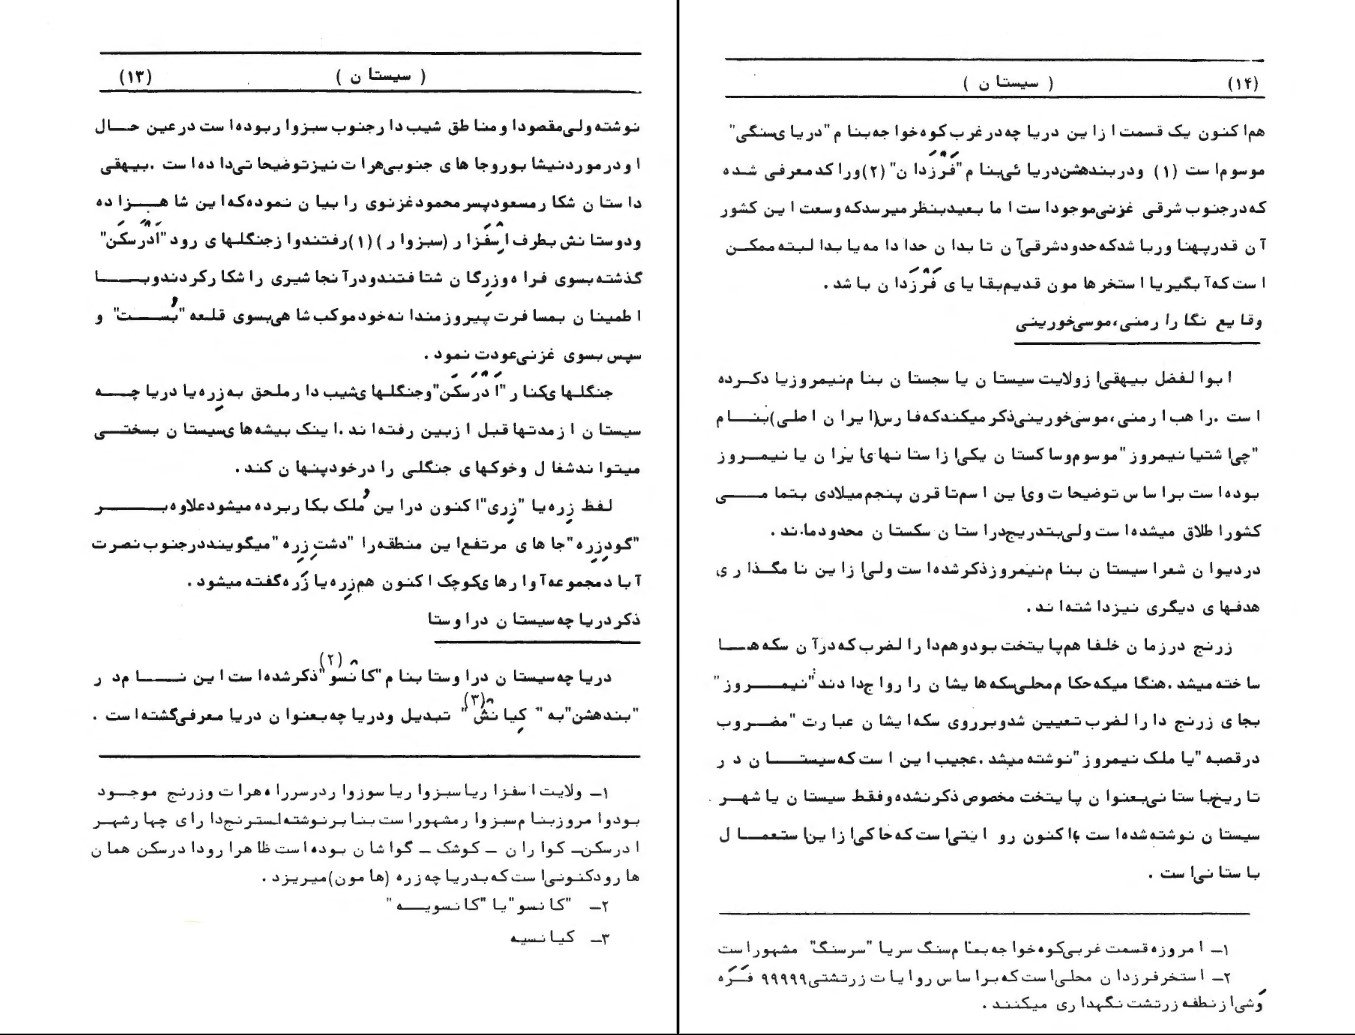 (۱۳) ( سیستان )
نوشته ولی مقصود او مناطق شیب دار جنوب سبزوار بوده است در عین حال
او در مورد نیشابور و جاهای جنوبی هرات نیز توضیحاتی داده است . بیهقی
داستان شکار مسعود پسر محمود غزنوی را بیان نموده که این شاهزاده
و دوستانش بطرف اِسْفَزار (سبزوار) (۱) رفتند و از جنگلهای رود "اَدْرَسکَن"
گذشته بسوی فراه و زِرگان شتافتند و در آنجا شیری را شکار کردند و با
اطمینان بمسافرت پیروزمندانه خود موکب شاهی بسوی قلعه "بُست" و
سپس بسوی غزنی عودت نمود .
جنگلهای کنار "اَدْرَسکَن" و جنگلهای شیب دار ملحق به زِره یا دریاچه
سیستان از مدتها قبل از بین رفته اند . اینک بیشه های سیستان بسختی
میتواند شغال و خوکهای جنگلی را در خود پنهان کند .
لفظ زِره یا "زِری" اکنون در این مُلک بکار برده میشود علاوه بر
"گودزِره" جاهای مرتفع این منطقه را "دشت زِره" میگویند در جنوب نصرت
آباد مجموعه آوارهای کوچک اکنون هم زِره یا زَره گفته میشود .
ذکر دریاچه سیستان در اوستا
دریاچه سیستان در اوستا بنام "کانسو" (۲) ذکر شده است این نام در
"بندهشن" به "کیانش" (۳) تبدیل و دریاچه بعنوان دریا معرفی گشته است .
۱ــ ولایت اسفزار یا سبزوار یا سوزوار در سر راه هرات و زرنج موجود
بود و امروز بنام سبزوار مشهور است بنابر نوشته لسترنج دارای چهار شهر
ادرسکن ــ کواران ــ کوشک ــ گواشان بوده است ظاهرا رود ادرسکن همان
هارود کنونی است که بدریاچه زره (هامون) میریزد .
۲ــ "کانسو" یا "کانسویه"
۳ــ کیانسیه
(۱۴) ( سیستان )
هم اکنون یک قسمت از این دریاچه در غرب کوه خواجه بنام "دریای سنگی"
موسوم است (۱) و در بندهشن دریائی بنام "فَرَزدان" (۲) و راکد معرفی شده
که در جنوب شرقی غزنی موجود است اما بعید بنظر میرسد که وسعت این کشور
آن قدر پهناور باشد که حدود شرقی آن تا بدان حد ادامه یابد البته ممکن
است که آبگیر یا استخر هامون قدیم بقایای فَرَزدان باشد .
وقایع نگار ارمنی ، موسی خورینی
ابوالفضل بیهقی از ولایت سیستان یا سجستان بنام نیمروز یاد کرده
است . راهب ارمنی ، موسی خورینی ذکر میکند که فارس (ایران اصلی) بنام
"چی اشتیا نیمروز" موسوم و ساکستان یکی از استانهای ایران یا نیمروز
بوده است بر اساس توضیحات وی این اسم تا قرن پنجم میلادی بتمامی
کشور اطلاق میشده است ولی بتدریج در استان سکستان محدود ماند .
در دیوان شعرا سیستان بنام نیمروز ذکر شده است ولی از این نامگذاری
هدفهای دیگری نیز داشته اند .
زرنج در زمان خلفا هم پایتخت بود و هم دارالضرب که در آن سکه ها
ساخته میشد . هنگامیکه حکام محلی سکه هایشان را رواج دادند "نیمروز"
بجای زرنج دارالضرب تعیین شد و بر روی سکه ایشان عبارت "مضروب
در قصبه" یا ملک نیمروز" نوشته میشد . عجیب این است که سیستان در
تاریخ باستانی بعنوان پایتخت مخصوص ذکر نشده و فقط سیستان یا شهر
سیستان نوشته شده است تا اکنون روایتی است که حاکی از این استعمال
باستانی است .
۱ــ امروزه قسمت غربی کوه خواجه بنام سنگ سر یا "سرسنگ" مشهور است
۲ــ استخر فرزدان محلی است که بر اساس روایات زرتشتی ۹۹۹۹۹ فَرَه
وَشی از نطفه زرتشت نگهداری میکنند .